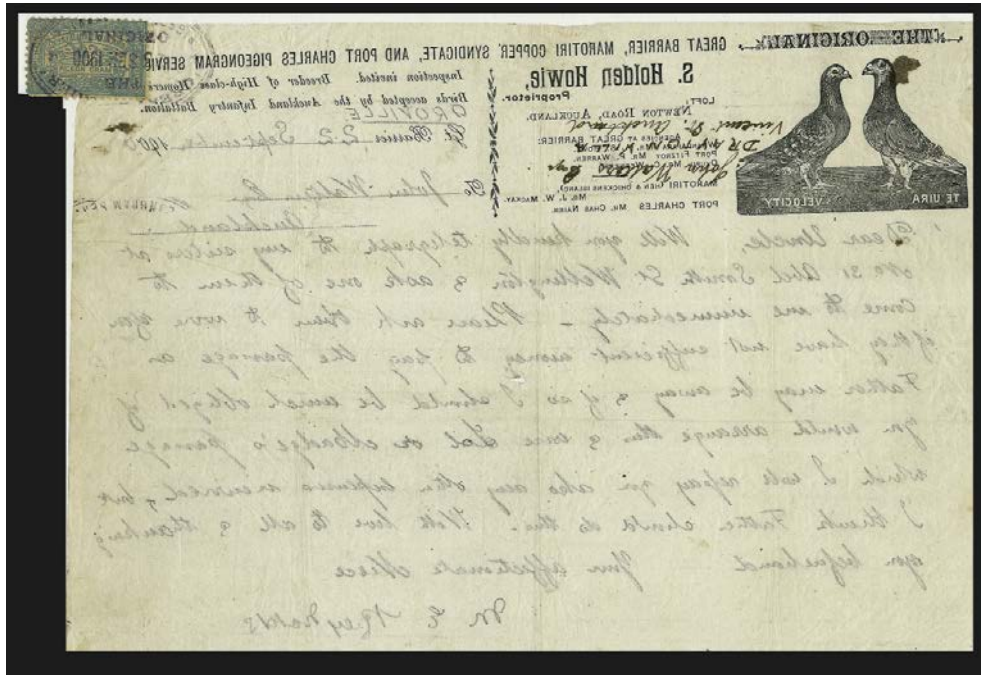 THE ORIGINAL
GREAT BARRIER, MAROTIRI COPPER SYNDICATE, AND PORT CHARLES PIGEONGRAM SERVICE
S. Holden Howie,
Proprietor.
LOFT:
NEWTON ROAD, AUCKLAND.
Vincent St Auckland
AGENCIES AT GREAT BARRIER:
PORT FITZROY MR. P. WARREN.
John Waters Esq
MAROTIRI (HEN & CHICKENS ISLAND)
MR. J. W. MACKAY.
PORT CHARLES MR. CHAS
TE UIRA
VELOCITY
Inspection invited. Breeder of High-class Homers
Birds accepted by the Auckland Infantry Battalion.
OROVILLE
Gt. Barrier 22 September 1900
To John Waters Esq
Auckland
Dear Uncle, Will you kindly telegraph to my sisters at
No 31 Abel Smith St Wellington & ask one of them to
come to me immediately - Please ask them to wire you
if they have not sufficient money to pay the passage as
Father may be away & if so I should be much obliged if
you would arrange this & wire Dot or Madge's passage
which I will repay you also any other expenses incurred, but
I think Father should do this. With love to all & thanking
you beforehand Your affectionate Niece
M E Reynolds